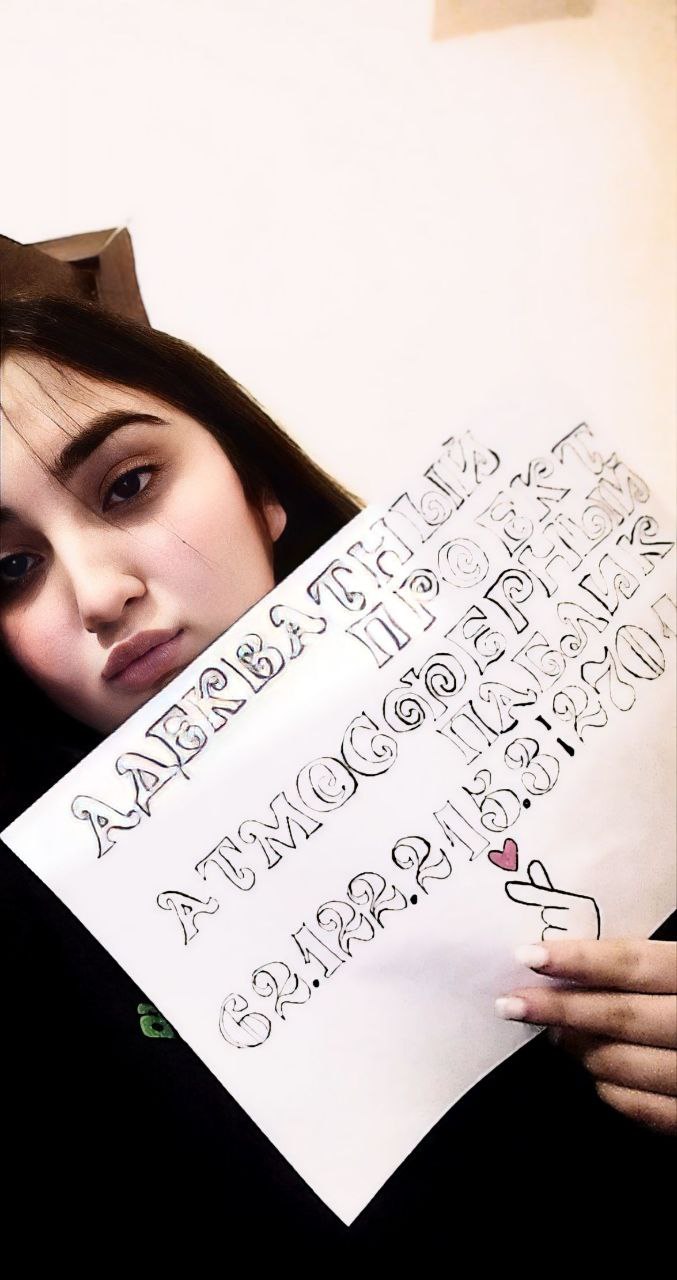 АДЕКВАТНЫЙ
ПРОЕКТ,
АТМОСФЕРНЫЙ
ПАБЛИК
62.122.215.3:2701